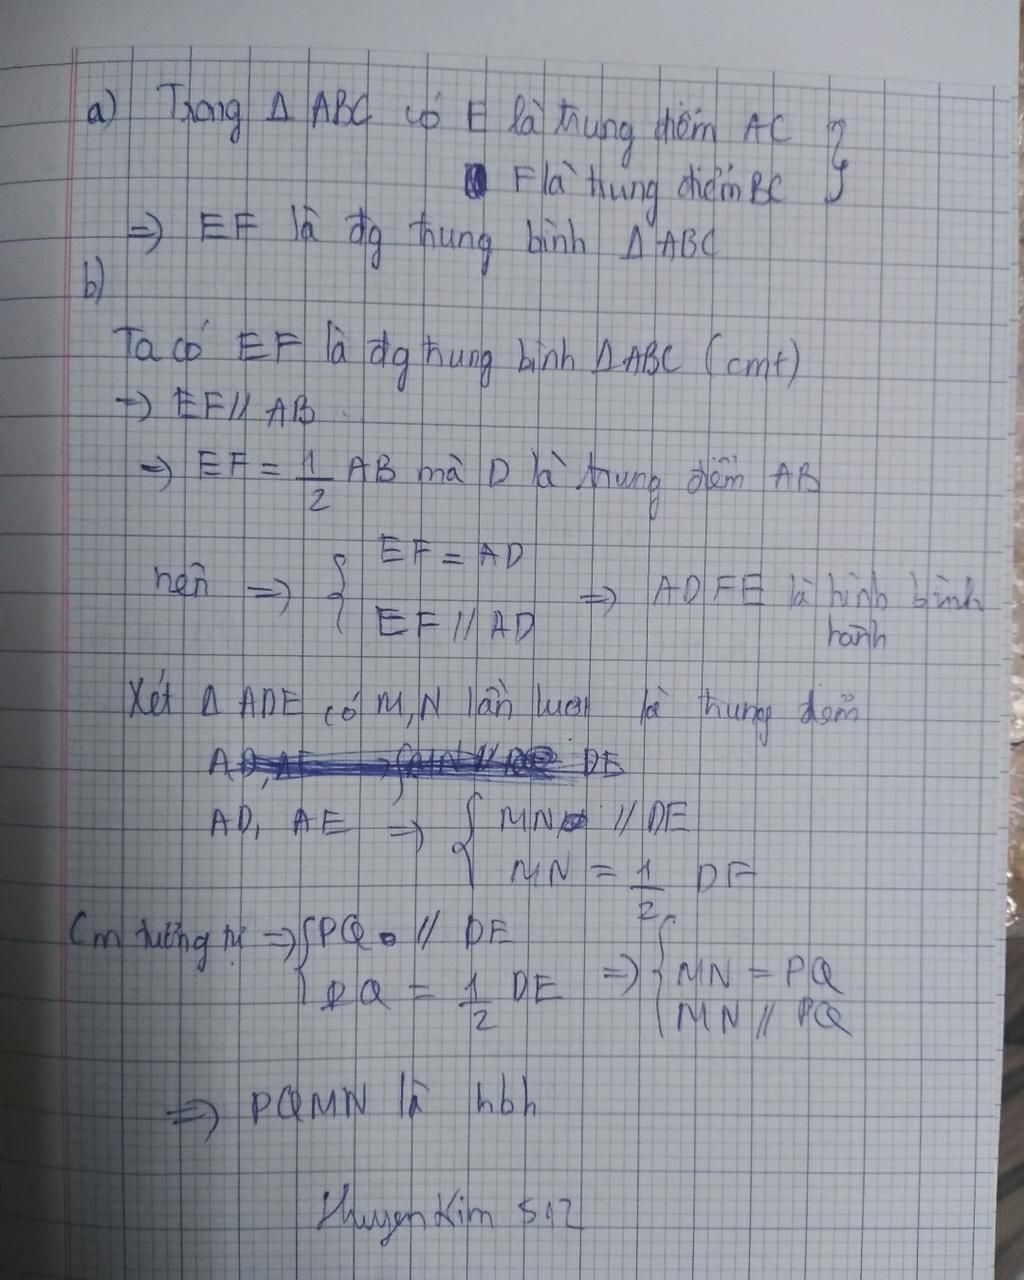 a) Trong Δ ABC có E là trung điểm AC }
F là trung điểm BC
=> EF là đg trung bình Δ ABC
b)
Ta có EF là đg trung bình Δ ABC (cmt)
-> EF // AB
=> EF = 1/2 AB mà D là trung điểm AB
nên => { EF = AD
EF // AD => ADFE là hình bình
hành
Xét Δ ADE có M, N lần lượt là trung điểm
AD, AE => { MN // DE
MN = 1/2 DE
Cm tương tự => { PQ // DE
PQ = 1/2 DE => { MN = PQ
MN // PQ
=> PQMN là hbh
ThuyenKim 512